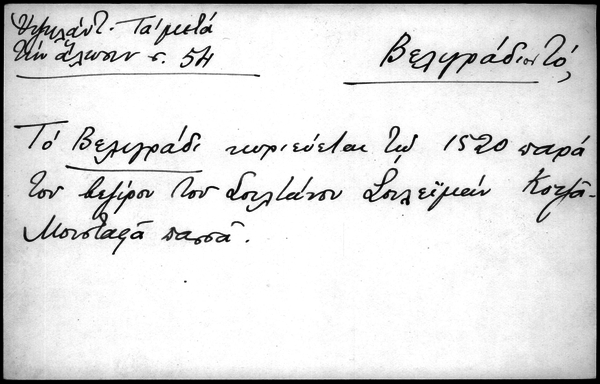 Ὑψηλάντ. Τά μετά
τήν ἅλωσιν σ. 54
Βελιγράδιον τό,
Τό Βελιγράδι κυριεύεται τῷ 1520 παρά
του βεζίρου του Σουλτάνου Σουλεϊμάν Κοτζᾶ-
Μουσταφᾶ πασσᾶ.